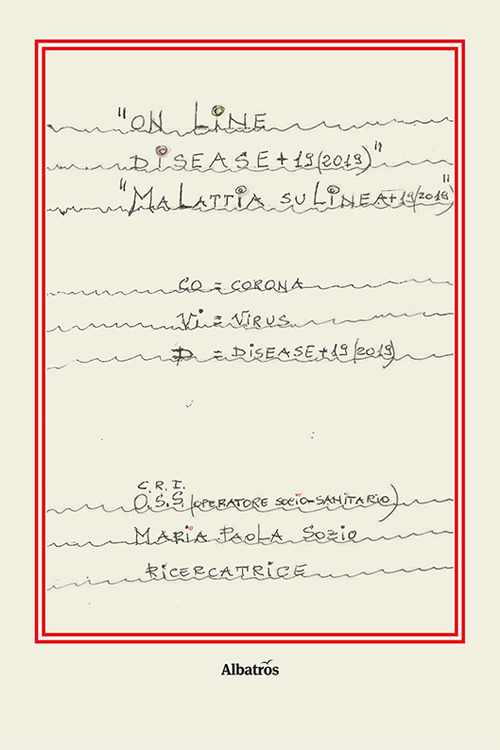 "ON LiNE
DiSEASE+19(2019)"
"MALATTiA SU LiNEA+19/2019"
CO = CORONA
Vi = ViRUS
D = DiSEASE+19/2019)
C.R.I.
O.S.S. (OPERATORE SOCiO-SANiTARiO)
MARiA PAOLA SOZiO
RiCERCATRiCE
Albatros